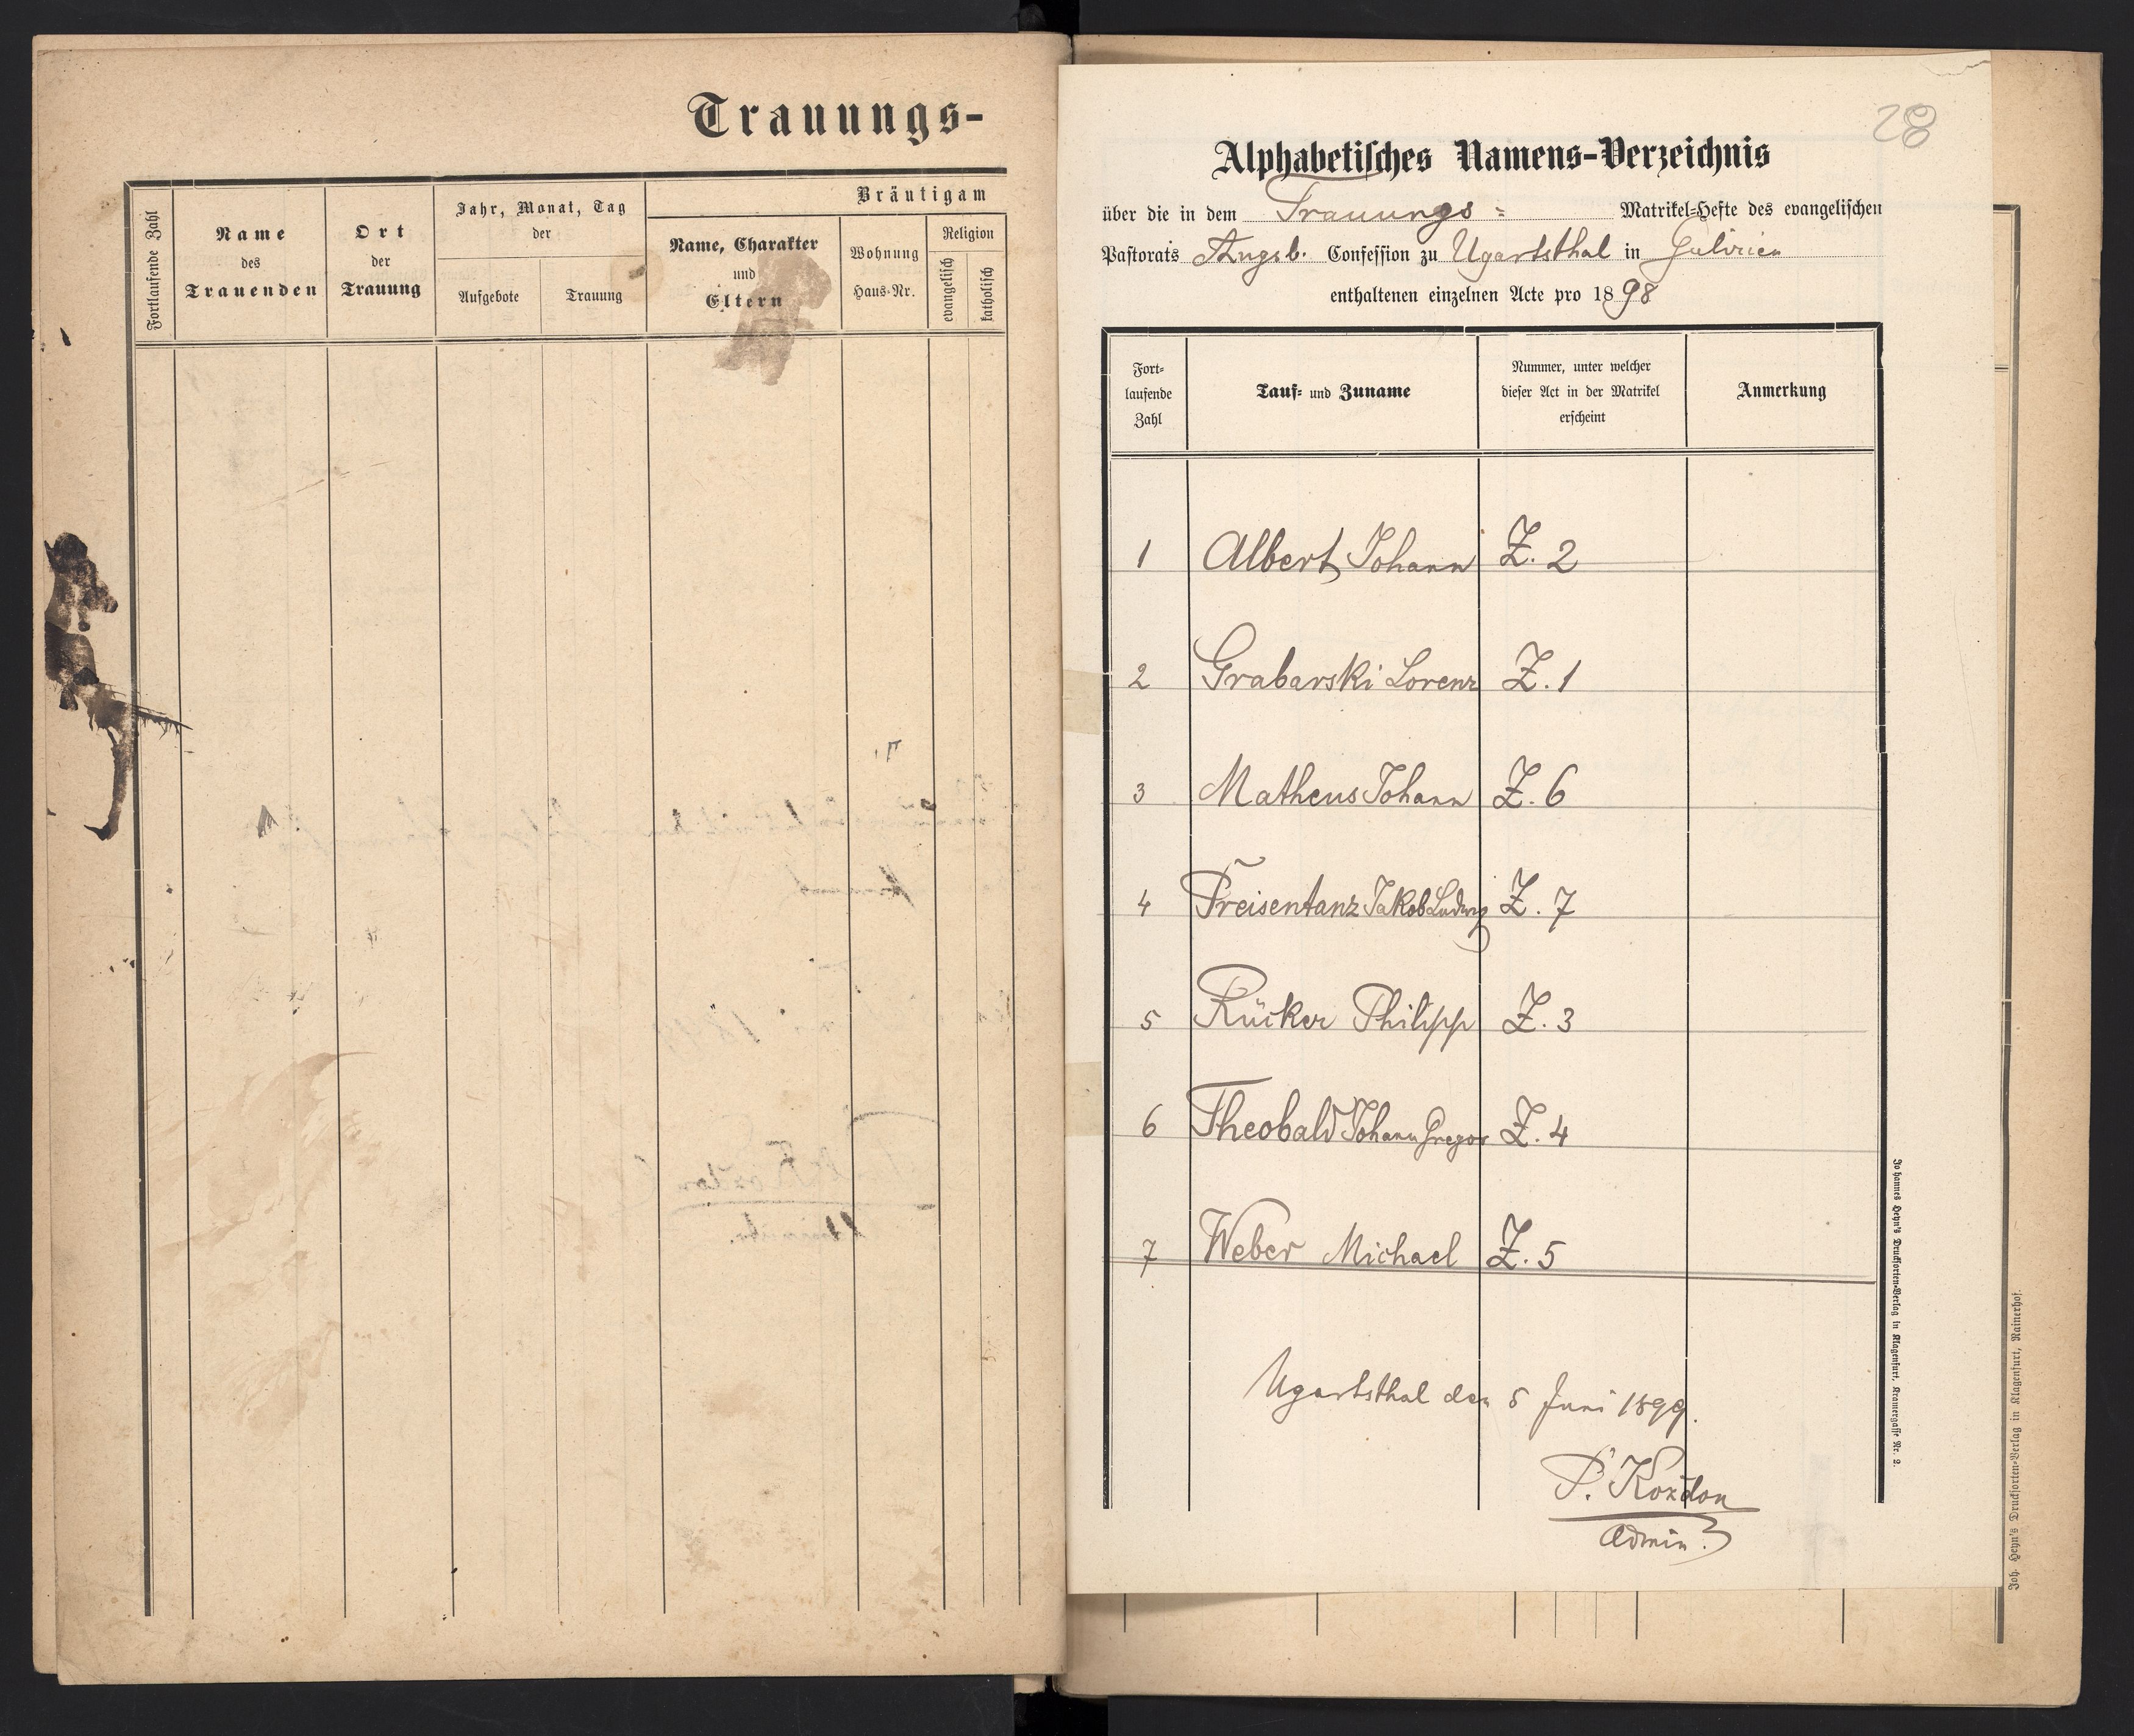 Trauungs-
Fortlaufende Zahl
Name
des
Trauenden
Ort
der
Trauung
Jahr, Monat, Tag
der
Aufgebote
Trauung
Bräutigam
Name, Charakter
und
Eltern
Wohnung
Haus-Nr.
Religion
evangelisch
katholisch
28
Alphabetisches Namens-Verzeichnis
über die in dem Trauungs- Matrikel-Hefte des evangelischen
Pastorats Augsb. Confession zu Ugartsthal in Galizien
enthaltenen einzelnen Acte pro 1898
Fort-
laufende
Zahl
Tauf- und Zuname
Nummer, unter welcher
dieser Act in der Matrikel
erscheint
Anmerkung
1 Albert Johann Z. 2
2 Grabarski Lorenz Z. 1
3 Matheus Johann Z. 6
4 Freisentanz Jakob Ludwig Z. 7
5 Rücker Philipp Z. 3
6 Theobald Johann Gregor Z. 4
7 Weber Michael Z. 5
Ugartsthal den 5 Juni 1899.
P. Kozdon
Admin.
Johannes Heyn's Drucksorten-Verlag in Klagenfurt, Kramergasse Nr. 2.
Joh. Heyn's Drucksorten-Verlag in Klagenfurt, Rainerhof.